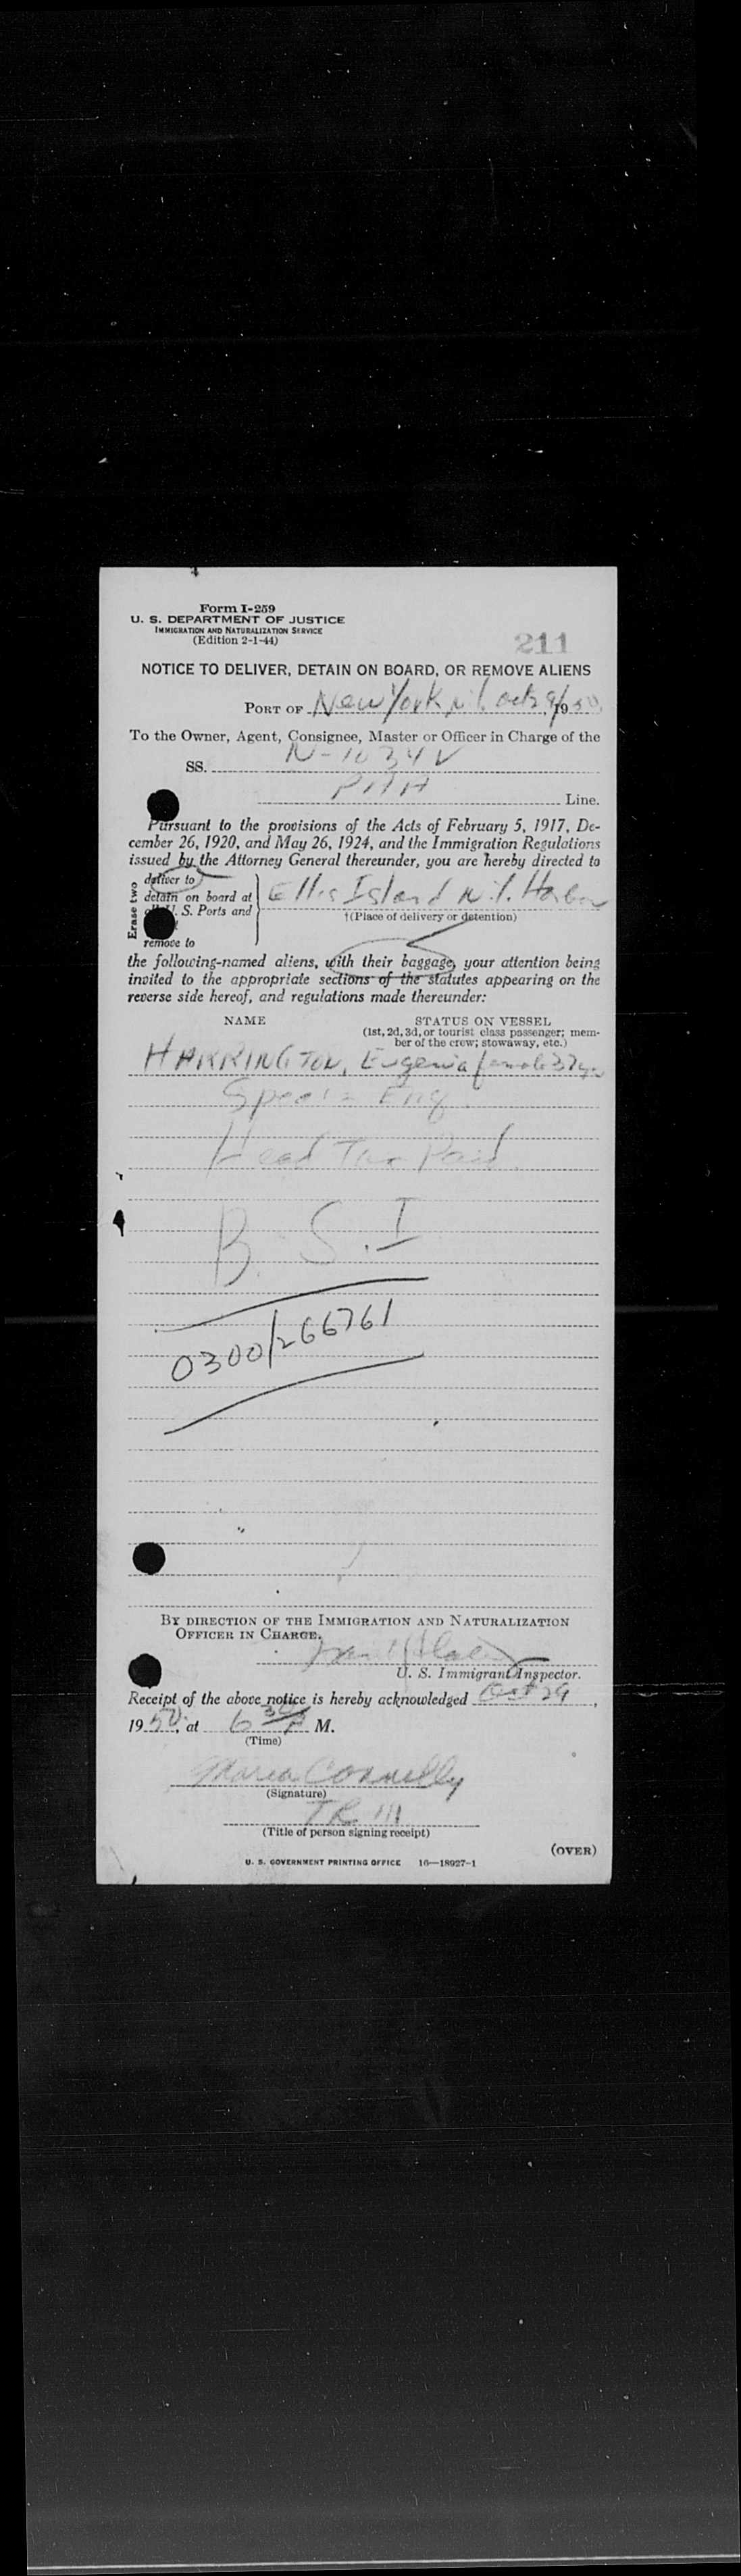 Form I-259
U. S. DEPARTMENT OF JUSTICE
IMMIGRATION AND NATURALIZATION SERVICE
(Edition 2-1-44)
211
NOTICE TO DELIVER, DETAIN ON BOARD, OR REMOVE ALIENS
PORT OF New York N.Y. Oct 29/, 1950
To the Owner, Agent, Consignee, Master or Officer in Charge of the
SS. N-1034V
PAA Line.
Pursuant to the provisions of the Acts of February 5, 1917, De-
cember 26, 1920, and May 26, 1924, and the Immigration Regulations
issued by the Attorney General thereunder, you are hereby directed to
Erase two
deliver to
detain on board at Ellis Island N.Y. Harbor
U. S. Ports and
†(Place of delivery or detention)
remove to
the following-named aliens, with their baggage, your attention being
invited to the appropriate sections of the statutes appearing on the
reverse side hereof, and regulations made thereunder:
NAME STATUS ON VESSEL
(1st, 2d, 3d, or tourist class passenger; mem-
ber of the crew; stowaway, etc.)
HARRINGTON, Eugenia female 37 yrs
Speaks Eng.
Head Tax Paid
B. S. I
0300/266761
BY DIRECTION OF THE IMMIGRATION AND NATURALIZATION
OFFICER IN CHARGE.
U. S. Immigrant Inspector.
Receipt of the above notice is hereby acknowledged Oct 29,
1950, at 6 30 P M.
(Time)
Maria Connelly
(Signature)
(Title of person signing receipt)
(OVER)
U. S. GOVERNMENT PRINTING OFFICE 16—18927-1